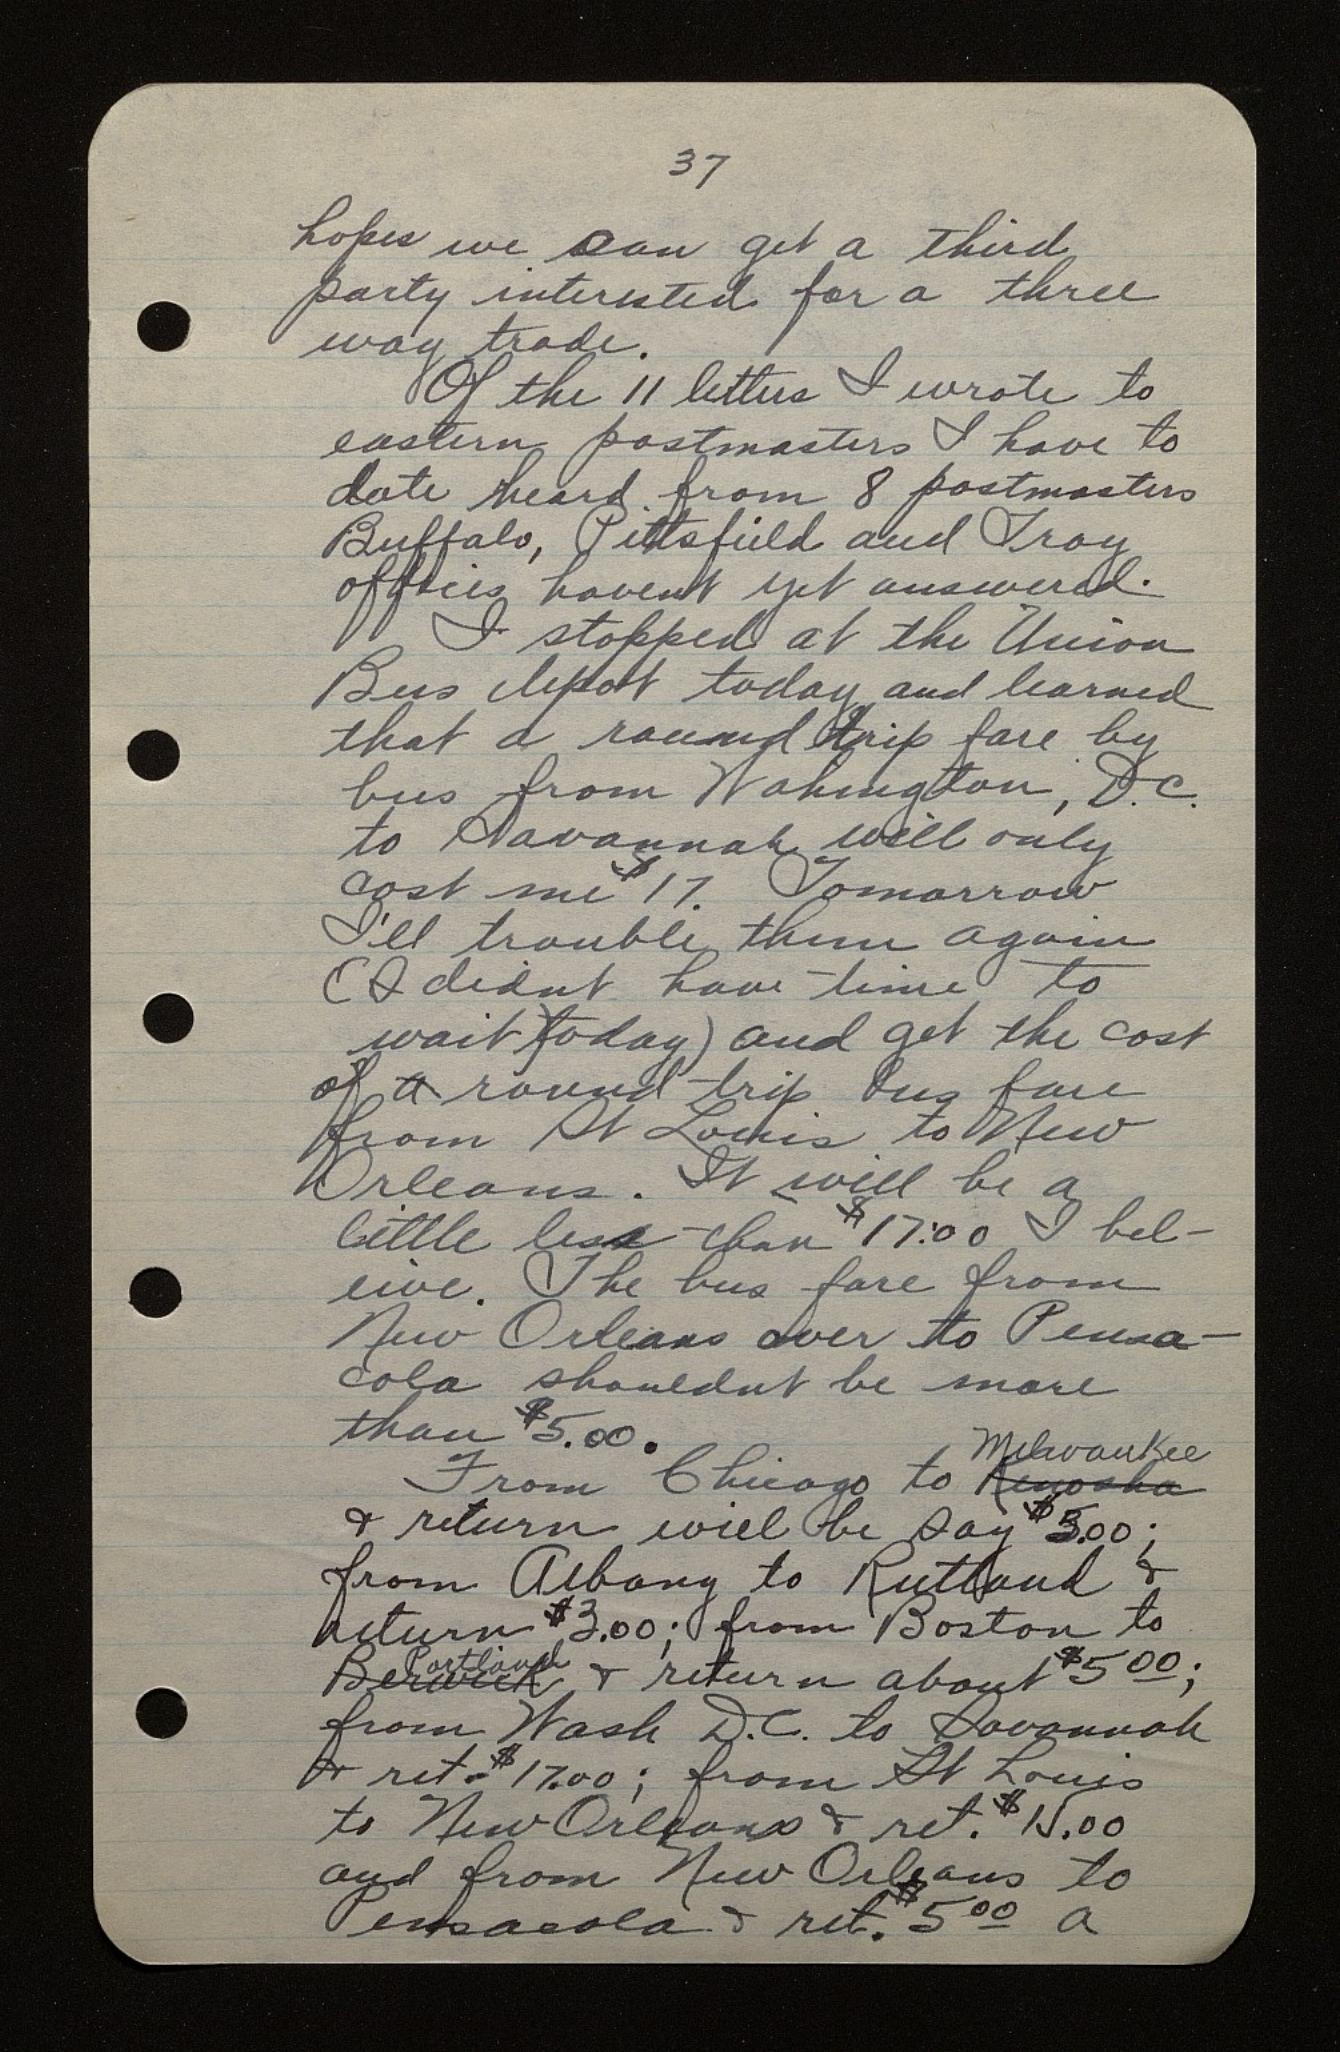 37
hopes we can get a third
party interested for a three
way trade.
Of the 11 letters I wrote to
eastern postmasters I have to
date heard from 8 postmasters
Buffalo, Pittsfield and Troy
offices havent yet answered.
I stopped at the Union
Bus depot today and learned
that a round trip fare by
bus from Wahington, D.C.
to Savannah will only
cost me $17. Tomorrow
I'll trouble them again
(I didnt have time to
wait today) and get the cost
of a round trip bus fare
from St Louis to New
Orleans. It will be a
little less than $17.00 I bel-
eive. The bus fare from
New Orleans over to Pensa-
cola shouldnt be more
than $5.00.
From Chicago to Kenosha Milwaukee
& return will be say $3.00;
from Albany to Rutland &
return $3.00; from Boston to
Berwick Portland & return about $5 00;
from Wash D.C. to Savannah
& ret. $17.00; from St Louis
to New Orleans & ret. $15.00
and from New Orleans to
Pensacola & ret. $5 00 a